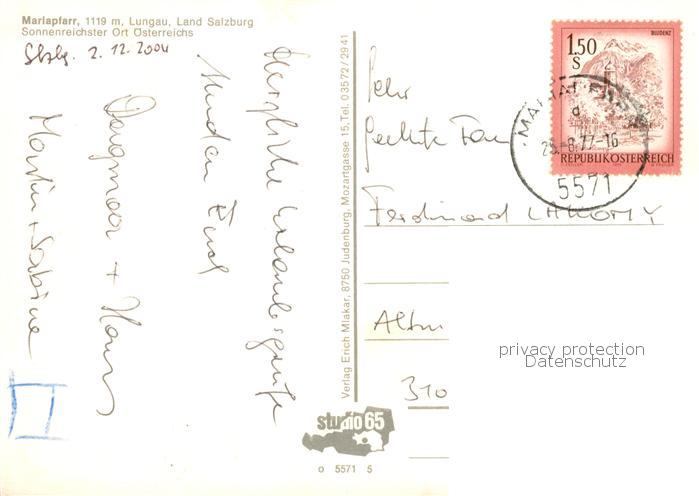 Mariapfarr, 1119 m, Lungau, Land Salzburg
Sonnenreichster Ort Österreichs
Slzbg. 2.12.2004
Herzliche Urlaubsgrüße
senden Euch
Dagmar + Hans
Martin + Sabine
Verlag Erich Mlakar, 8750 Judenburg, Mozartgasse 15, Tel. 03572/2941
studio 65
o 5571 5
BLUDENZ
1.50
S
REPUBLIK ÖSTERREICH
MARIAPFARR
25.-8.77-16
5571
Sehr
Geehrte Fam
Ferdinand LAKOMY
Altm
310
privacy protection
Datenschutz